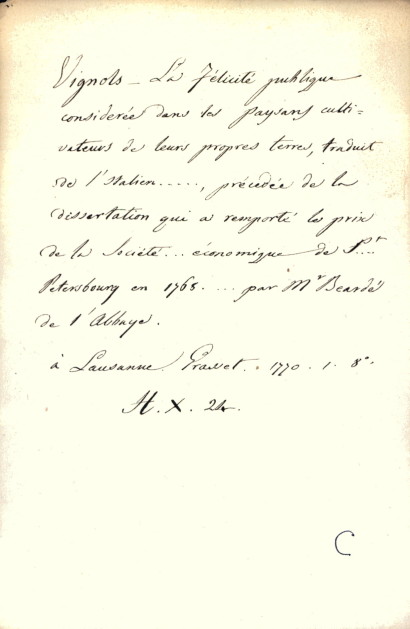 Vignols – La félicité publique
considerée dans les paysans culti=
vateurs de leurs propres terres, traduit
de l'italien ....., précédée de la
dissertation qui a remporté le prix
de la Société ... économique de St....
Petersbourg en 1768. ... par Mr Beardé
de l'Abbaye.
à Lausanne Grasset. . 1770 . 1 . 8°.
H. X. 24.
C